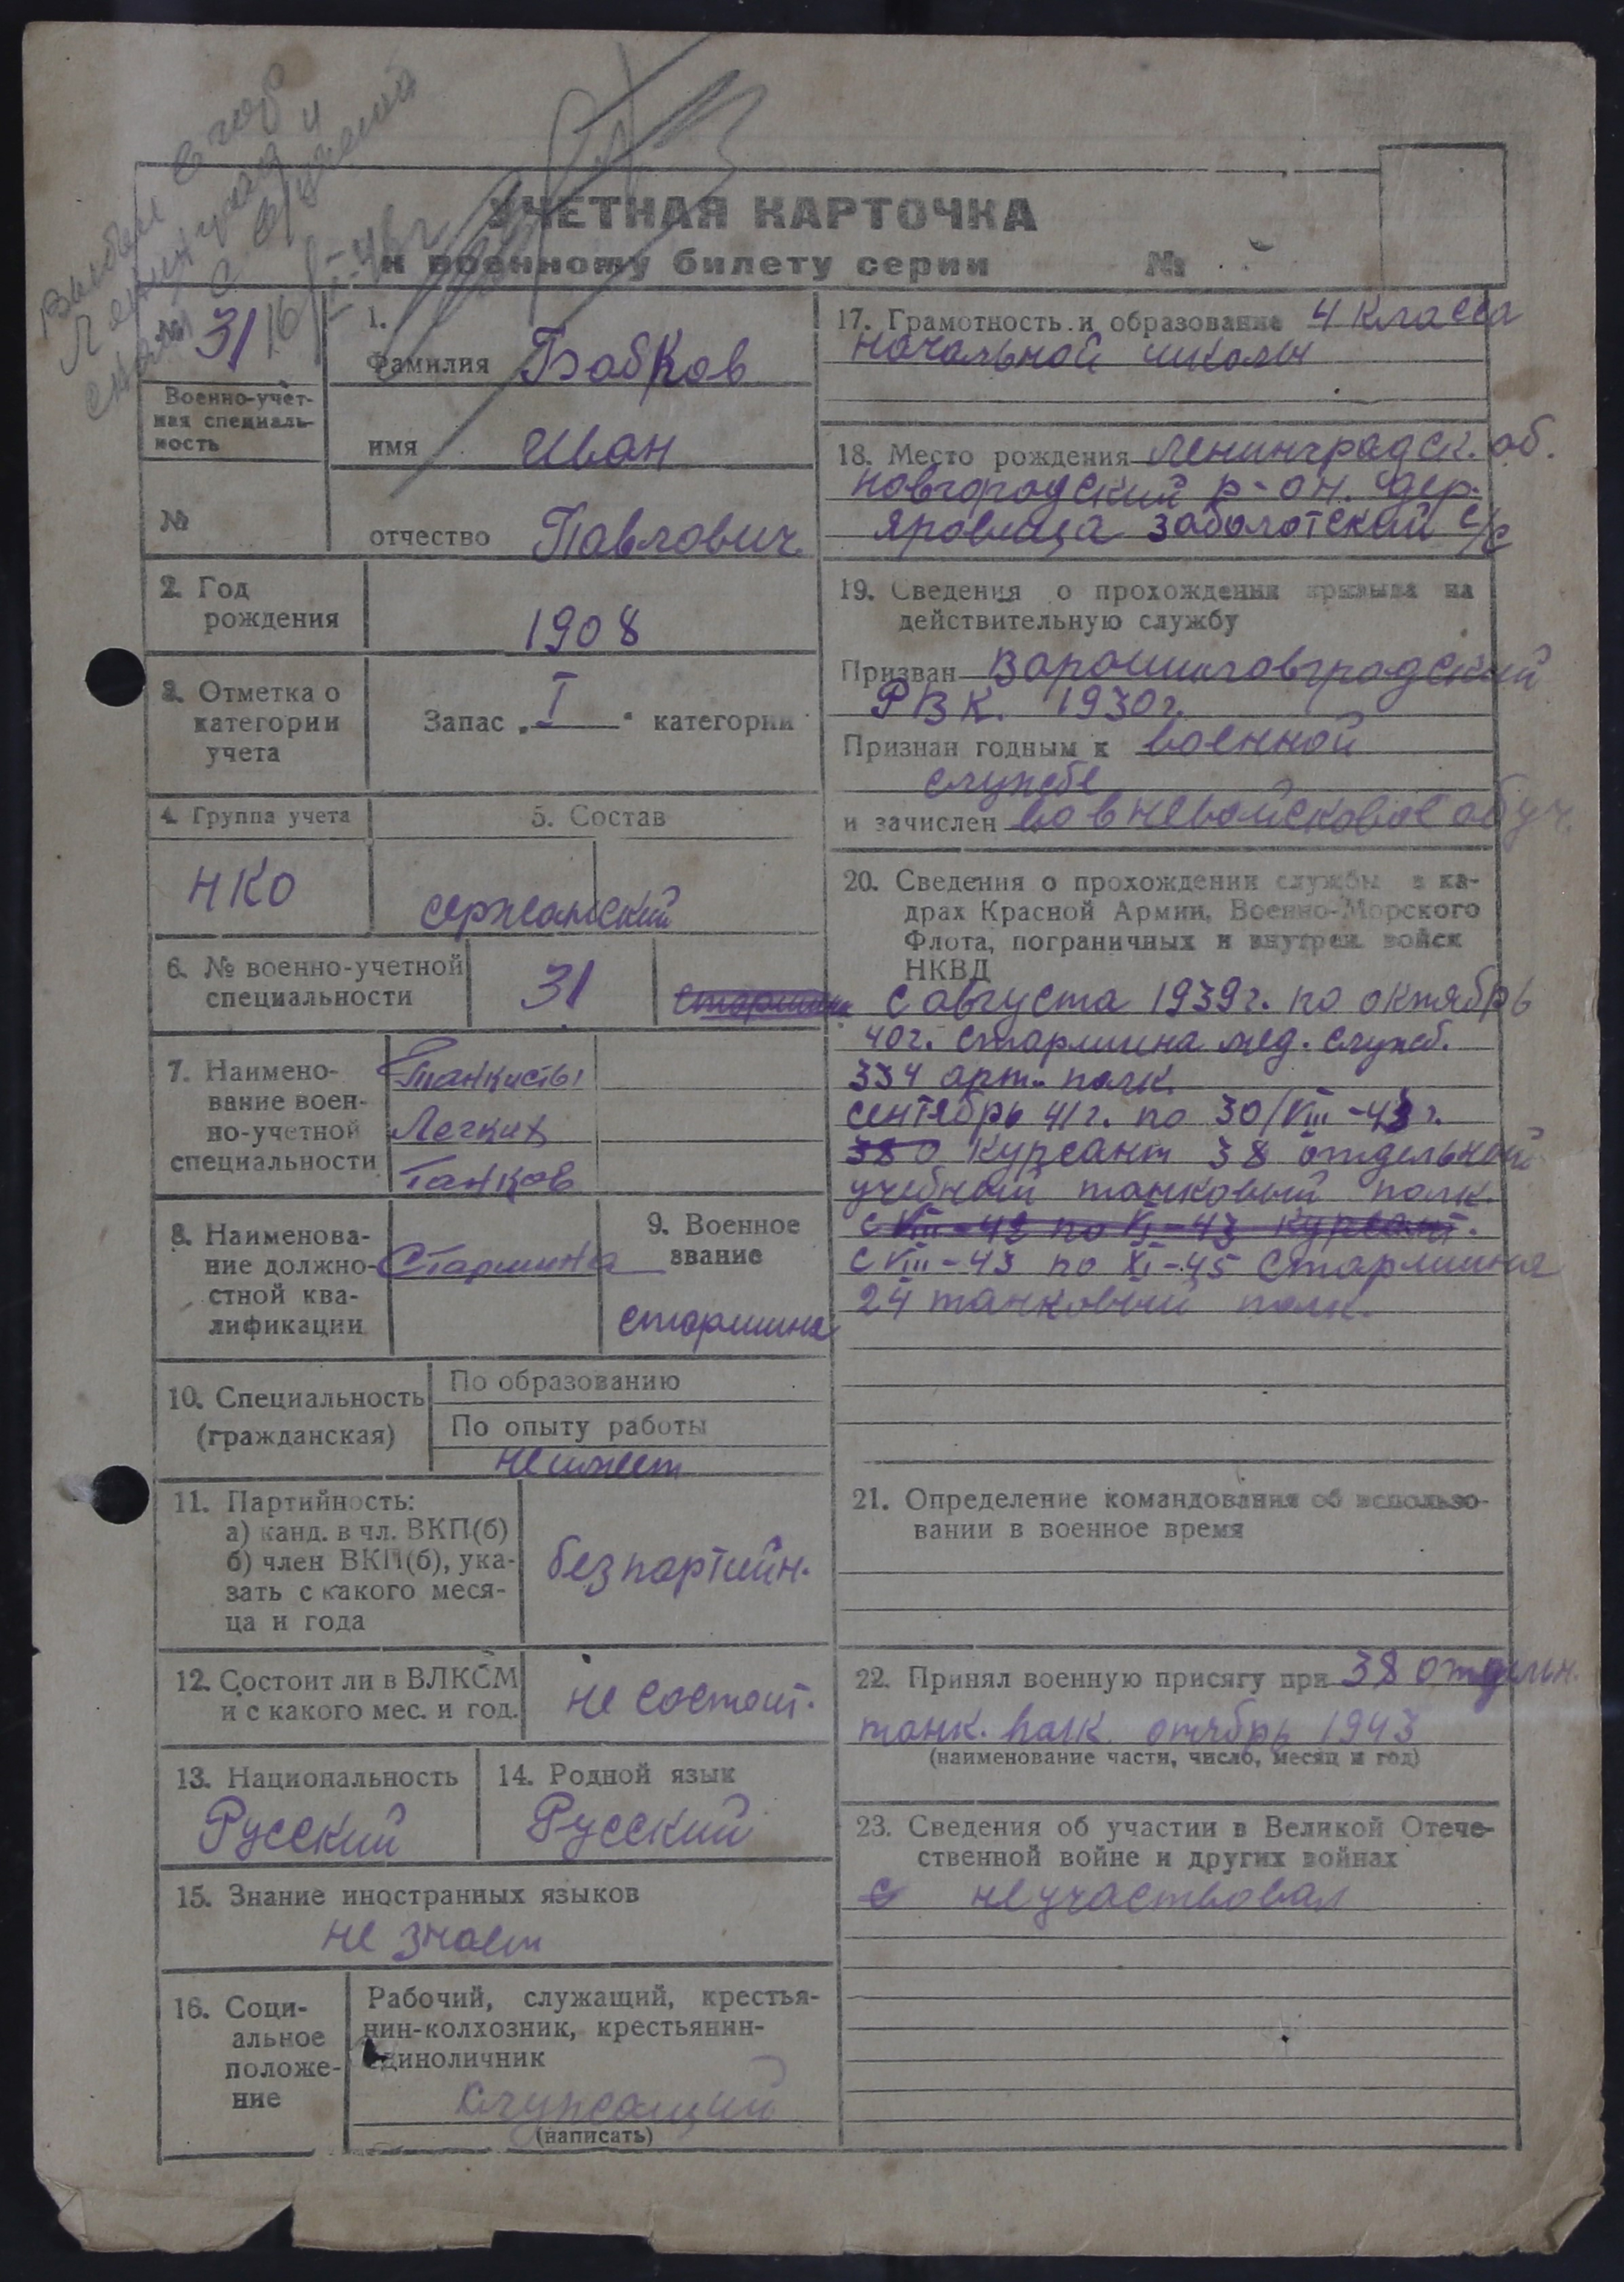 Выбыл в гор
Ленинград и
снят с в/учета
16/II-46г
УЧЕТНАЯ КАРТОЧКА
к военному билету серии №
№ 31
Военно-учет-
ная специаль-
ность
№
1.
Фамилия Бобков
имя Иван
отчество Павлович
2. Год
рождения
1908
3. Отметка о
категории
учета
Запас „ I " категории
4. Группа учета
НКО
5. Состав
сержанский
6. № военно-учетной
специальности
31
старшина
7. Наимено-
вание воен-
но-учетной
специальности
Танкисты
Легких
Танков
8. Наименова-
ние должно-
стной ква-
лификации
Старшина
9. Военное
звание
старшина
10. Специальность
(гражданская)
По образованию
По опыту работы
не имеет
11. Партийность:
а) канд. в чл. ВКП(б)
б) член ВКП(б), ука-
зать с какого меся-
ца и года
без партийн.
12. Состоит ли в ВЛКСМ
и с какого мес. и год.
не состоит.
13. Национальность
Русский
14. Родной язык
Русский
15. Знание иностранных языков
не знает
16. Соци-
альное
положе-
ние
Рабочий, служащий, крестья-
нин-колхозник, крестьянин-
единоличник
служащий
(написать)
17. Грамотность и образование 4 класса
начальной школы
18. Место рождения Ленинградск. об.
Новгородский р-он. дер.
Яровица Заболотский с/с
19. Сведения о прохождении призыва на
действительную службу
Призван Ворошиловградский
РВК. 1930г.
Признан годным к военной
службе
и зачислен во вневойсковое обуч.
20. Сведения о прохождении службы в ка-
драх Красной Армии, Военно-Морского
Флота, пограничных и внутрен. войск
НКВД
с августа 1939г. по октябрь
40г. старшина мед. служб.
334 арт. полк
сентябрь 41г. по 30/VIII-43г.
380 курсант 38 отдельный
учебный танковый полк.
с VIII-42 по XI-43 курсант.
с VIII-43 по XI-45 старшина
24 танковый полк.
21. Определение командования об использо-
вании в военное время
22. Принял военную присягу при 38 отдельн.
танк. полк. отябрь 1943
(наименование части, число, месяц и год)
23. Сведения об участии в Великой Отече-
ственной войне и других войнах
с не участвовал